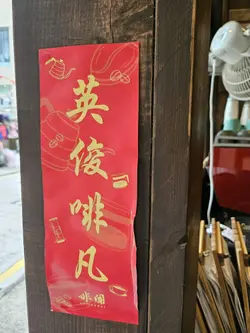 英俊啡凡
啡園